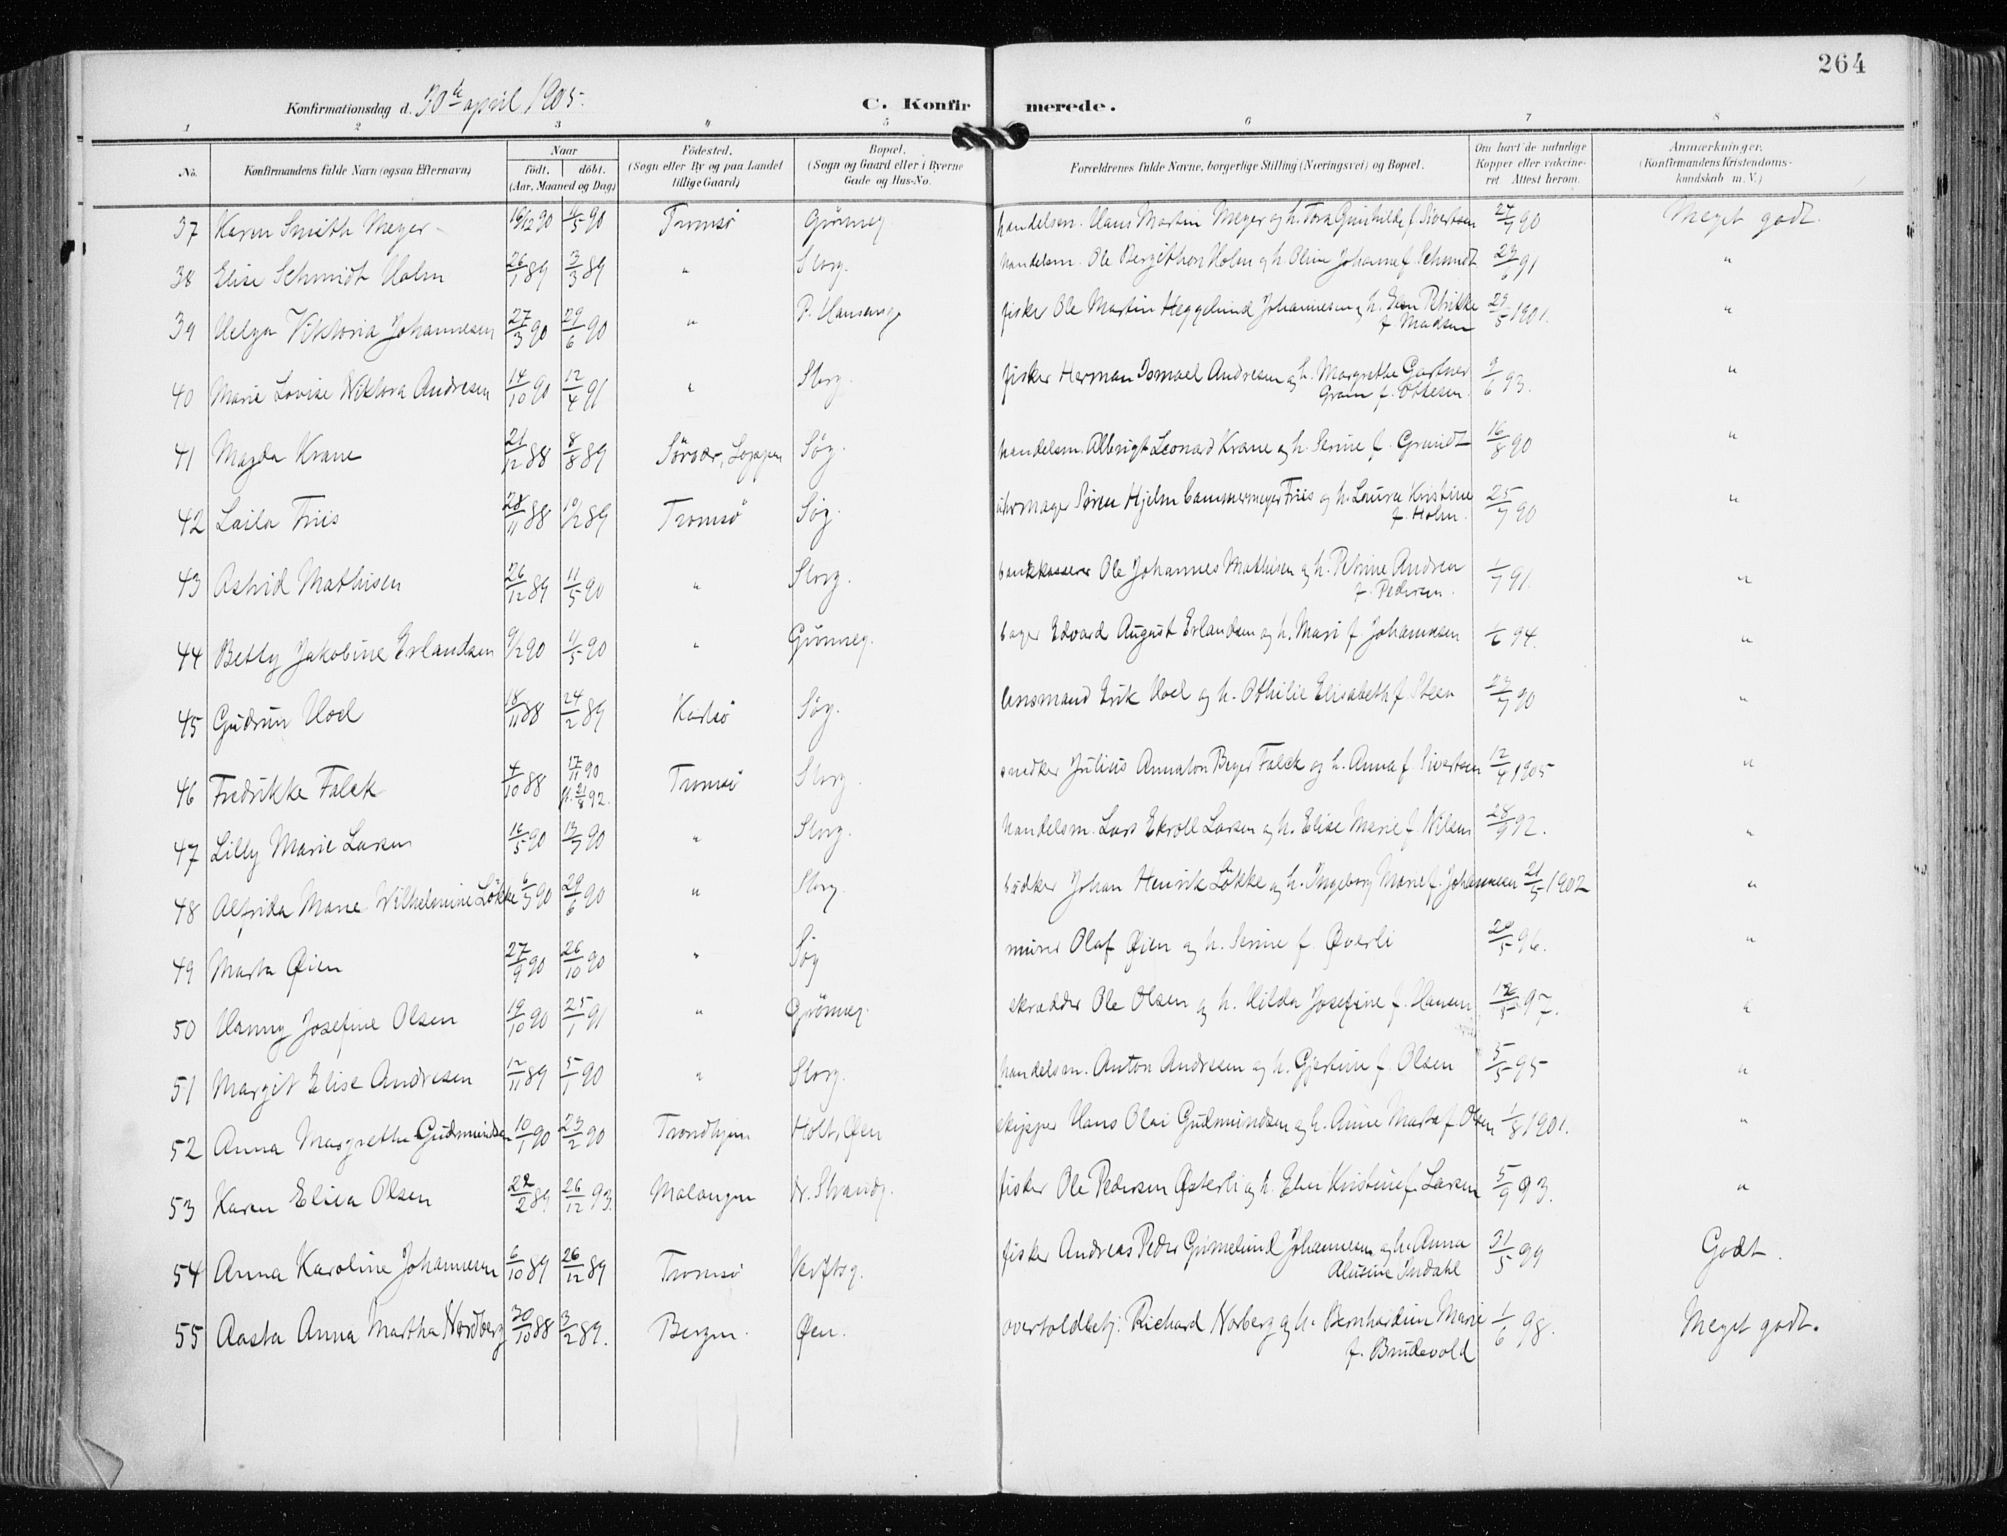 264
Konfirmationsdag d. 30te april 1905.
C. Konfirmerede.
1 2 3 4 5 6 7 8
No. Konfirmandens fulde Navn (ogsaa Efternavn) Naar født, døbt. (Aar, Maaned og Dag) Fødested. (Sogn eller By og paa Landet tillige Gaard) Bopæl. (Sogn og Gaard eller i Byerne Gade og Hus-No. Forældrenes fulde Navne, borgerlige Stilling (Næringsvei) og Bopæl. Om havt de naturlige Kopper eller vakcineret. Attest herom. Anmærkninger. (Konfirmandens Kristendomskundskab m. V.)
37 Karen Smith Meyer 16/12 90 11/5 90 Tromsø Grönneg. handelsm. Hans Martin Meyer og h. Tora Gunhilde f. Sivertsen 27/7 90 Meget godt.
38 Elise Schmidt Holm 26/1 89 3/3 89 " Storg. handelsm. Ole Bergithon Holm og h. Oline Johanne f. Schmidt 23/6 91 "
39 Helga Viktoria Johannesen 27/3 90 29/6 90 " P. Hansensg. fisker Ole Martin Heggelund Johannesen og h. Elen Petrikke f. Madsen 23/5 1901. "
40 Marie Lovise Viktora Andresen 14/10 90 12/4 91 " Storg. fisker Herman Ismael Andresen og h. Margrethe Gartner Gram f. Ottesen. 9/6 93. "
41 Magda Krane 21/12 88 8/8 89 Sörvær, Loppen Søg. handelsm. Albrigt Leonard Krane og h. Serine f. Grundt 16/8 90 "
42 Laila Friis 28/11 88 10/2 89 Tromsø Søg. uhrmager Søren Hjelm Cammermeyer Friis og h. Laura Kristine f. Holm. 25/7 90 "
43 Astrid Mathisen 26/12 89 11/5 90 " Storg. bankkasserer Ole Johannes Mathisen og h. Petrine Andrea f. Pedersen. 1/7 91. "
44 Betty Jakobine Erlandsen 9/2 90 11/5 90 " Grönneg. bager Edvard August Erlandsen og h. Mari f. Johannesen 1/6 94. "
45 Gudrun Hoel 18/11 88 24/2 89 Karlsö Søg. lensmand Erik Hoel og h. Othilie Elisabeth f. Steen 27/7 90 "
46 Fredrikke Falck 4/10 88 17/11 90 st. 21/8 92. Tromsø Storg. snedker Julius Annaton Beyer Falck og h. Anna f. Sivertsen 12/4 1905 "
47 Lilly Marie Larsen 16/5 90 13/7 90 " Storg. handelsm. Lars Ekroll Larsen og h. Elise Marie f. Nilsen 28/9 92. "
48 Alfrida Marie Wilhelmine Lökke 6/5 90 29/6 90 " Storg. bödker Johan Henrik Lökke og h. Ingeborg Marie f. Johannesen 21/5 1902 "
49 Marta Øien 27/9 90 26/10 90 " Søg murer Olaf Øien og h. Serine f. Øverli 20/5 96. "
50 Hanny Josefine Olsen 19/10 90 25/1 91 " Grönneg. skrædder Ole Olsen og h. Hilda Josefine f. Hansen 12/5 97. "
51 Margit Elise Andresen 12/11 89 5/1 90 " Storg. handelsm. Anton Andresen og h. Gjertine f. Olsen 5/5 95 "
52 Anna Margrethe Gudmundsen 10/1 90 23/2 90 Trondhjem Holts, Øen skipper Hans Olai Gudmundsen og h. Anne Marta f. Olsen 1/8 1901. "
53 Karen Elisa Olsen 22/2 89 26/12 93. Malangen N. Strandg. fisker Ole Pedersen Østerli og h. Elen Kristine f. Larsen 5/9 93. "
54 Anna Karoline Johannesen 6/10 89 26/12 89 Tromsø Verftsg. fisker Andreas Peder Gimelund Johannesen og h. Anna Alusine Indahl 31/5 99 Godt.
55 Aasta Anna Martha Nordberg 30/10 88 3/2 89. Bergen. Øen. overtoldbetj. Richard Norberg og h. Bernhardin Marie f. Brudevold 1/6 98. Meget godt.